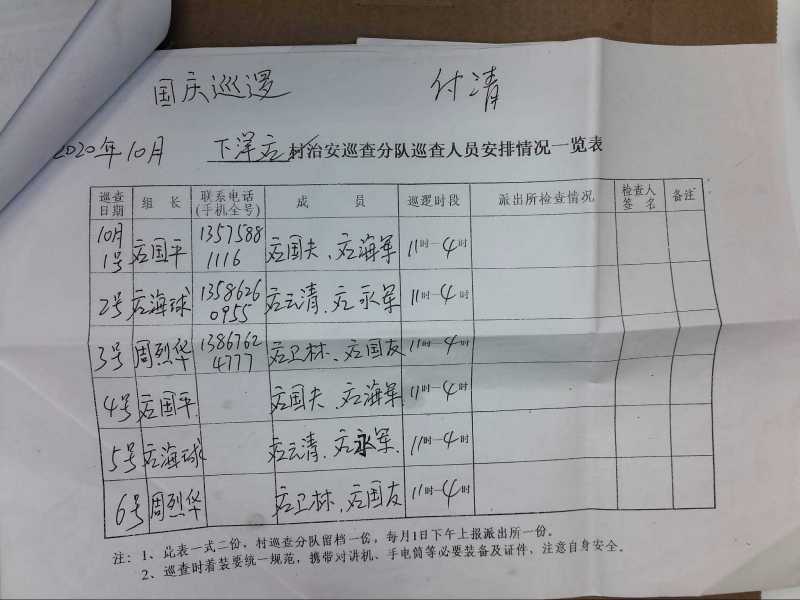 国庆巡逻 付清
2020年10月 下洋应村治安巡查分队巡查人员安排情况一览表
巡查日期 组长 联系电话(手机全号) 成员 巡逻时段 派出所检查情况 检查人签名 备注
10月1号 应国平 13575881116 应国夫、应海军 11时—4时
2号 应海球 13586260955 应云清、应永军 11时—4时
3号 周烈华 13867624777 应卫林、应国友 11时—4时
4号 应国平 应国夫、应海军 11时—4时
5号 应海球 应云清、应永军 11时—4时
6号 周烈华 应卫林、应国友 11时—4时
注：1、此表一式二份，村巡查分队留档一份，每月1日下午上报派出所一份。
2、巡查时着装要统一规范，携带对讲机、手电筒等必要装备及证件，注意自身安全。